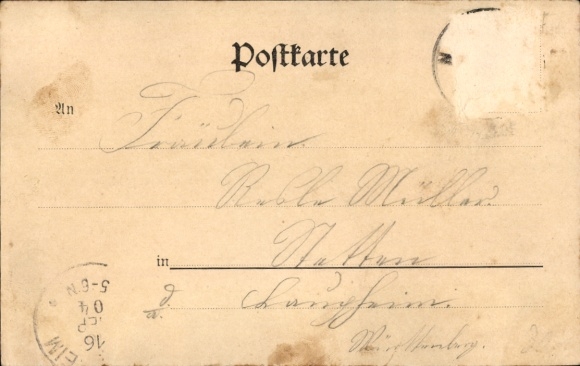 Postkarte
An
Fräulein
Resle Müller.
in Stetten
Laupheim.
Württemberg.
N
5-6 N.
04
SEP
16
EIM